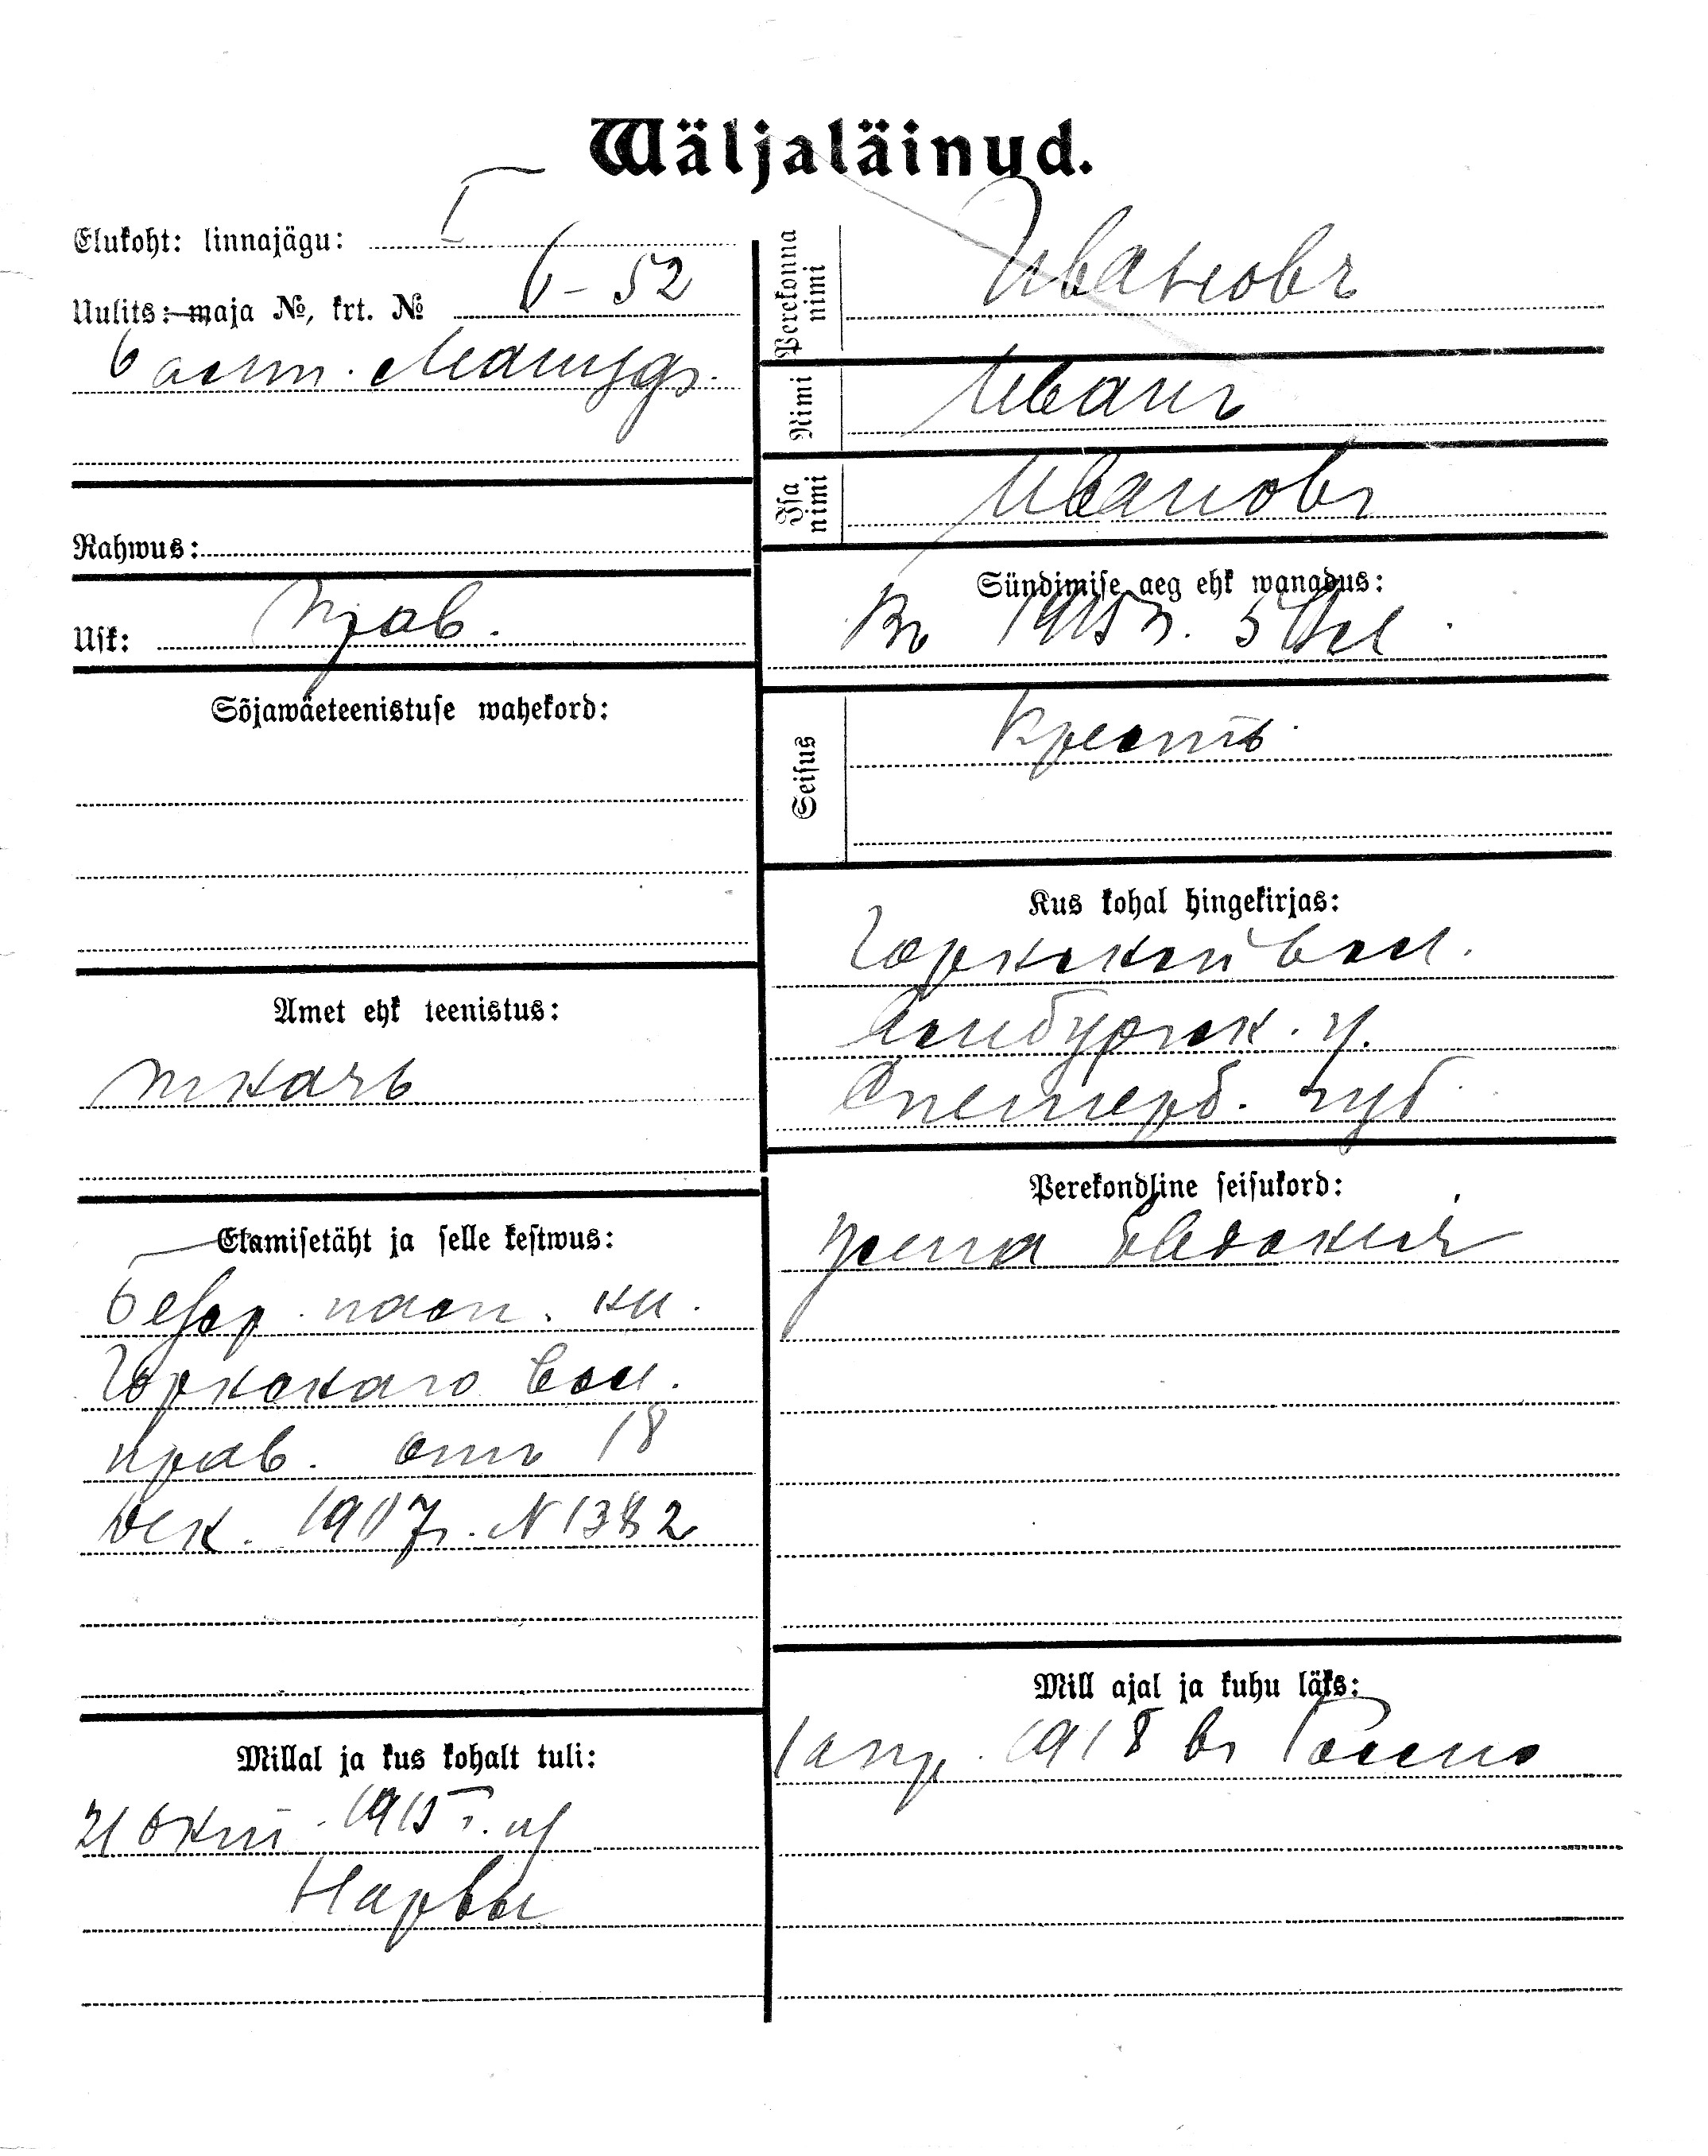 Wäljaläinud.
Elukoht: linnajägu: I
Uulits: maja №, krt. № 6 - 52
Rahwus:
Usk: прав.
Sõjawäeteenistuse wahekord:
Amet ehk teenistus:
ткачъ
Elamisetäht ja selle kestwus:
безср. пасп. кн.
Горскаго вол.
прав. отъ 18
дек. 1907г. N 1382
Millal ja kus kohalt tuli:
21 окт. 1915 г. из
Нарвы
Perekonna nimi Ивановъ
Nimi Иванъ
Isa nimi Ивановъ
Sündimise aeg ehk wanadus:
Въ 1915 г.
Seisus Крест.
Kus kohal hingekirjas:
Горской вол.
Ямбургск. у.
Спетерб. губ.
Perekondline seisukord:
жена Евдокія
Mill ajal ja kuhu läks:
1 апр. 1918 въ